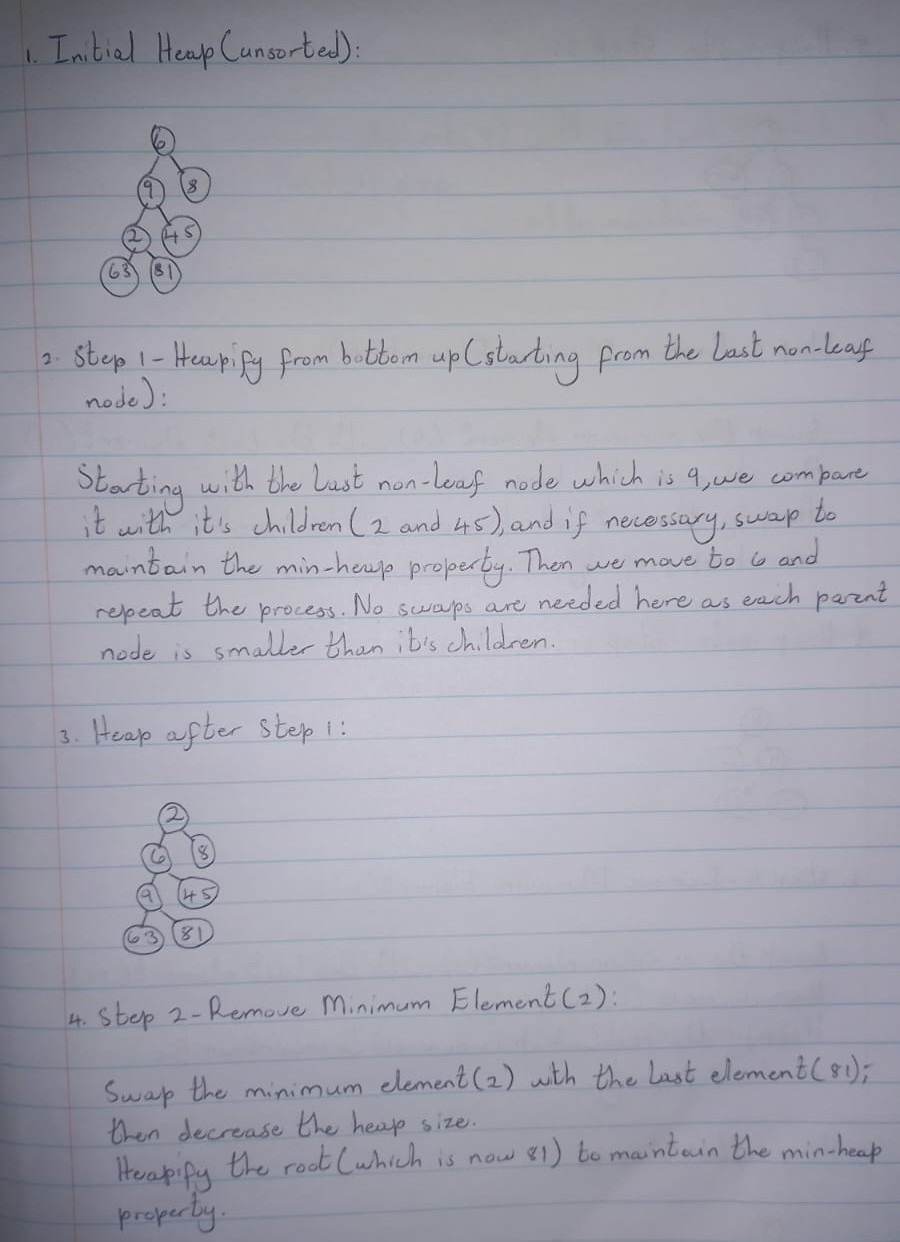 1. Initial Heap (unsorted):
6
9 8
2 45
63 81
2. Step 1 - Heapify from bottom up (starting from the last non-leaf
node):
Starting with the last non-leaf node which is 9, we compare
it with it's children (2 and 45), and if necessary, swap to
maintain the min-heap property. Then we move to 6 and
repeat the process. No swaps are needed here as each parent
node is smaller than it's children.
3. Heap after Step 1:
2
6 8
9 45
63 81
4. Step 2 - Remove Minimum Element (2):
Swap the minimum element (2) with the last element (81);
then decrease the heap size.
Heapify the root (which is now 81) to maintain the min-heap
property.